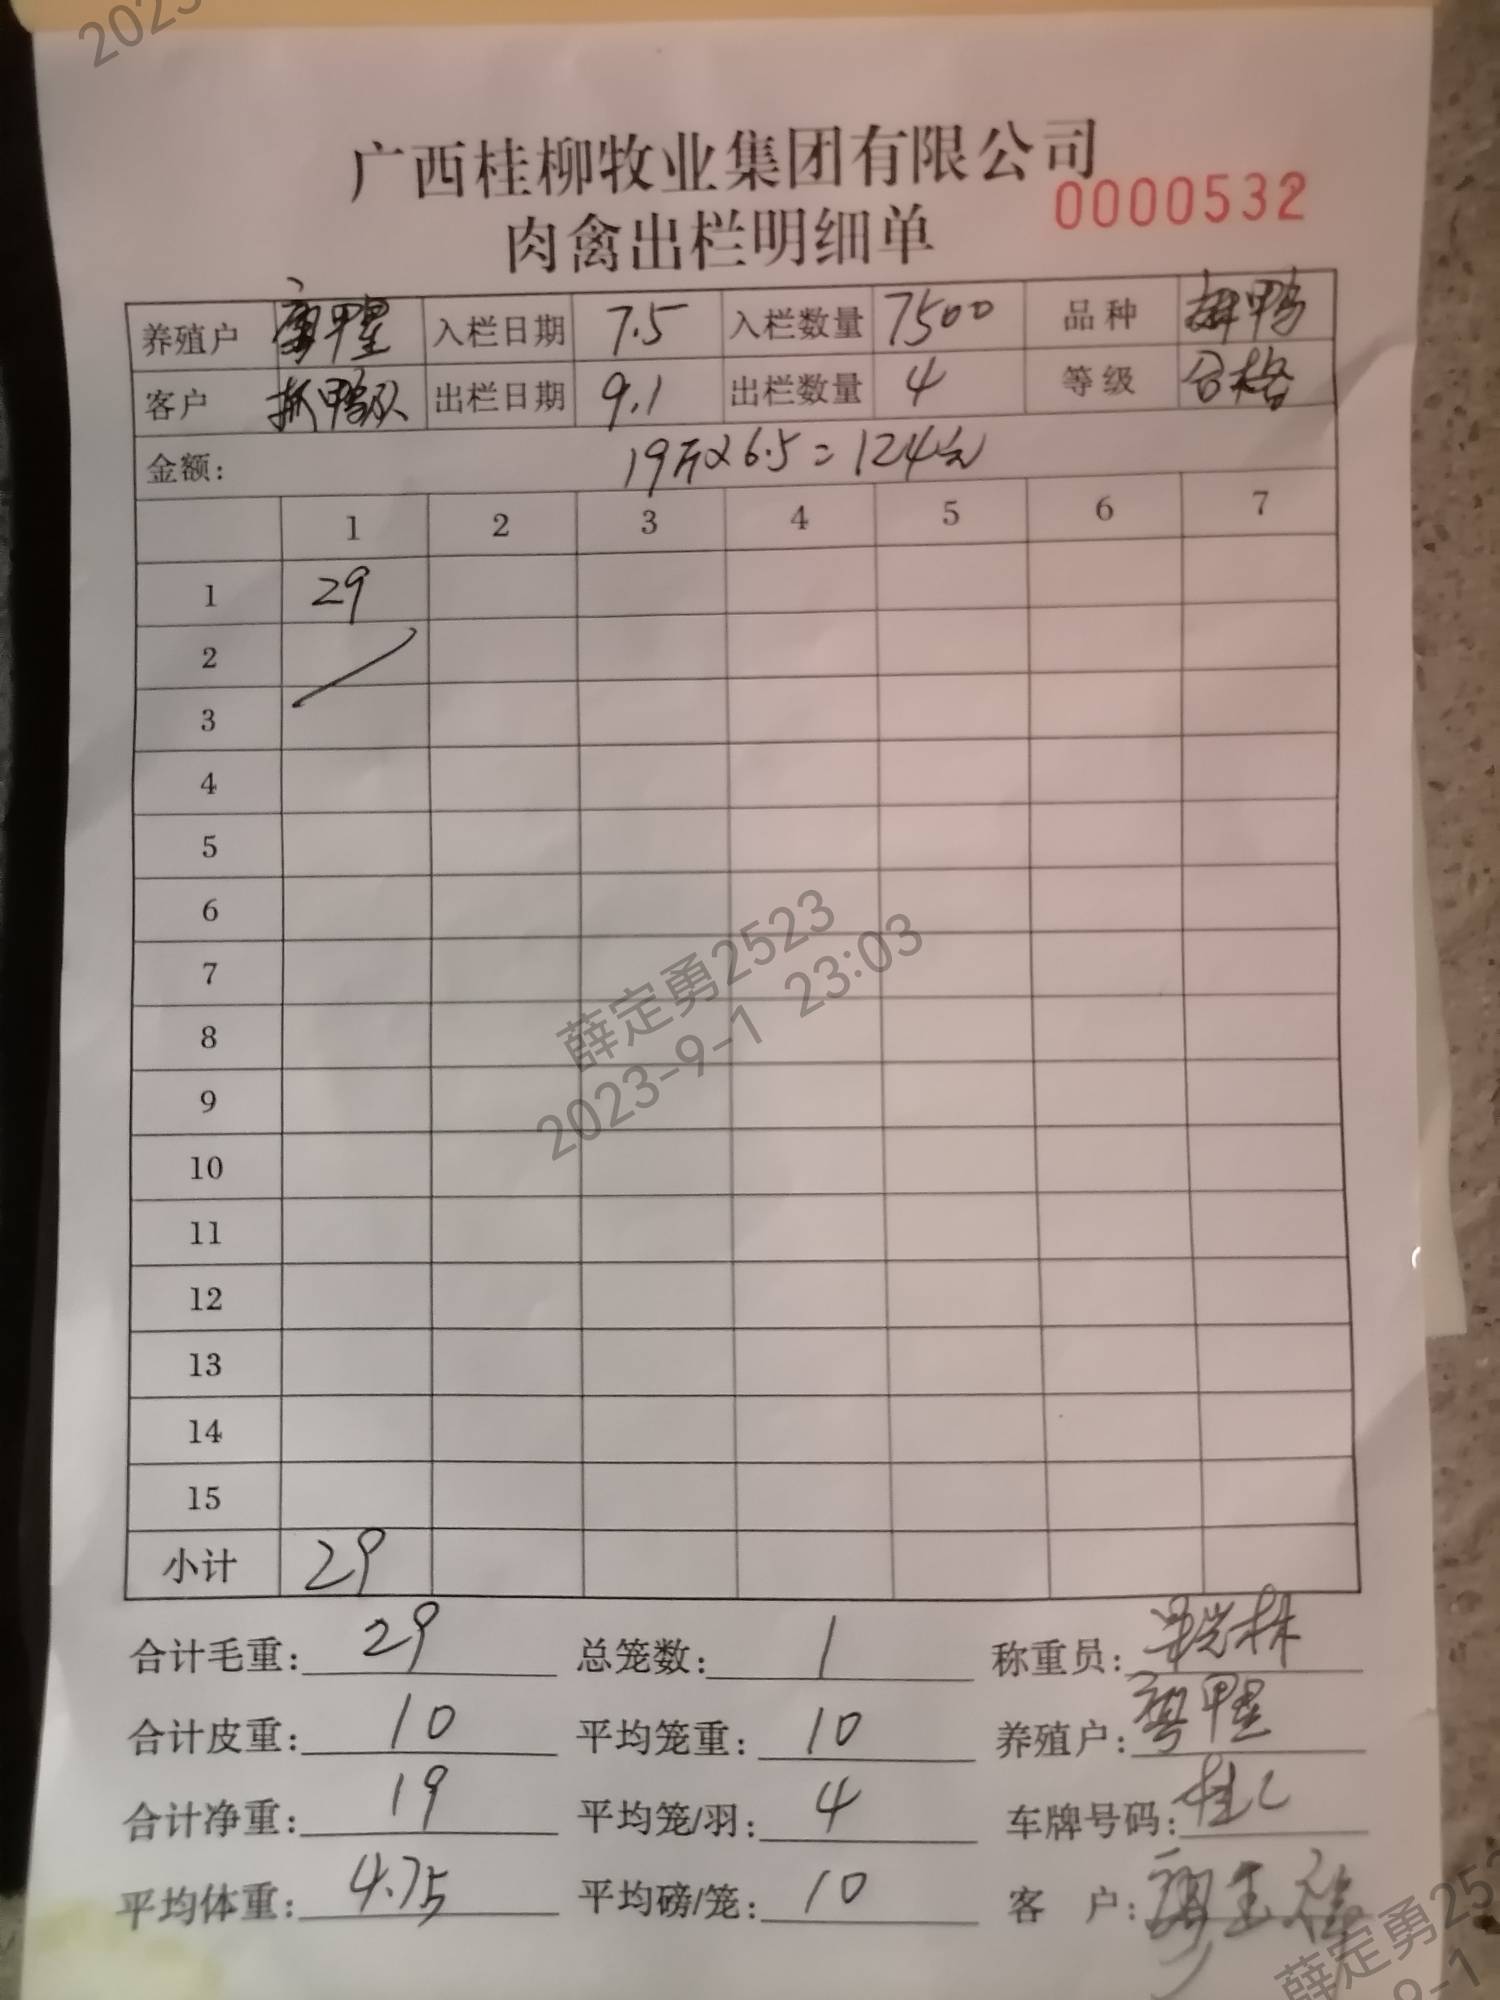 2023
广西桂柳牧业集团有限公司
0000532
肉禽出栏明细单
养殖户 入栏日期 7.5 入栏数量 7500 品种 麻鸭
客户 抓鸭队 出栏日期 9.1 出栏数量 4 等级 合格
金额: 19斤×6.5=124元
1 2 3 4 5 6 7
1 29
2
3
4
5
6
7
8
9
10
11
12
13
14
15
薛定勇2523
2023-9-1 23:03
小计 29
合计毛重: 29 总笼数: 1 称重员:
合计皮重: 10 平均笼重: 10 养殖户:
合计净重: 19 平均笼/羽: 4 车牌号码: 桂L
平均体重: 4.75 平均磅/笼: 10 客户:
薛定勇252
9-1